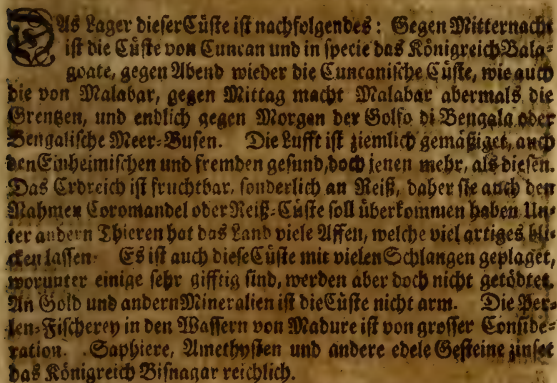 DAs Lager dieser Cüste ist nachfolgendes: Gegen Mitternacht
ist die Cüste von Cuncan und in specie das Königreich Bala-
goate, gegen Abend wieder die Cuncanische Cüste, wie auch
die von Malabar, gegen Mittag macht Malabar abermals die
Grentzen, und endlich gegen Morgen der Golfo di Bengala oder
Bengalische Meer-Busen. Die Lufft ist ziemlich gemäßiget, auch
den Einheimischen und fremden gesund, doch jenen mehr, als diesen.
Das Erdreich ist fruchtbar, sonderlich an Reiß, daher sie auch den
Nahmen Coromandel oder Reiß-Cüste soll überkommen haben Un-
ter andern Thieren hat das Land viele Affen, welche viel artiges bli-
cken lassen. Es ist auch diese Cüste mit vielen Schlangen geplaget,
worunter einige sehr gifftig sind, werden aber doch nicht getödtet.
An Gold und andern Mineralien ist die Cüste nicht arm. Die Per-
len-Fischerey in den Wassern von Madure ist von grosser Conside-
ration. Saphiere, Amethysten und andere edele Gesteine zinset
das Königreich Bisnagar reichlich.